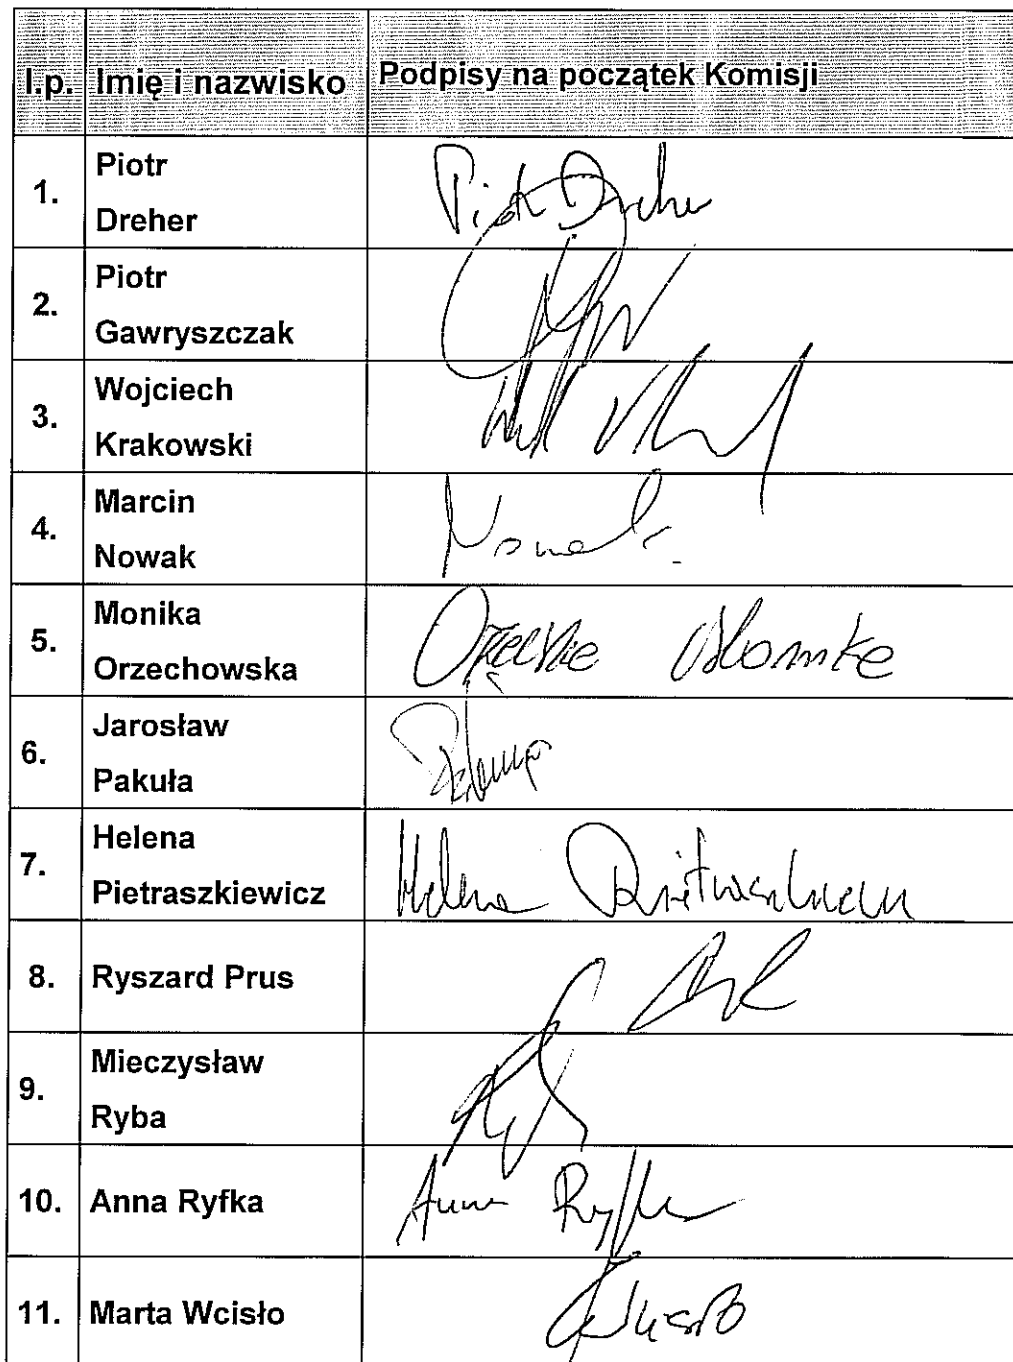 l.p. Imię i nazwisko Podpisy na początek Komisji
1. Piotr Dreher Piotr Dreher
2. Piotr Gawryszczak
3. Wojciech Krakowski
4. Marcin Nowak Nowak
5. Monika Orzechowska
6. Jarosław Pakuła
7. Helena Pietraszkiewicz Helena Pietraszkiewicz
8. Ryszard Prus
9. Mieczysław Ryba
10. Anna Ryfka Anna Ryfka
11. Marta Wcisło Wcisło